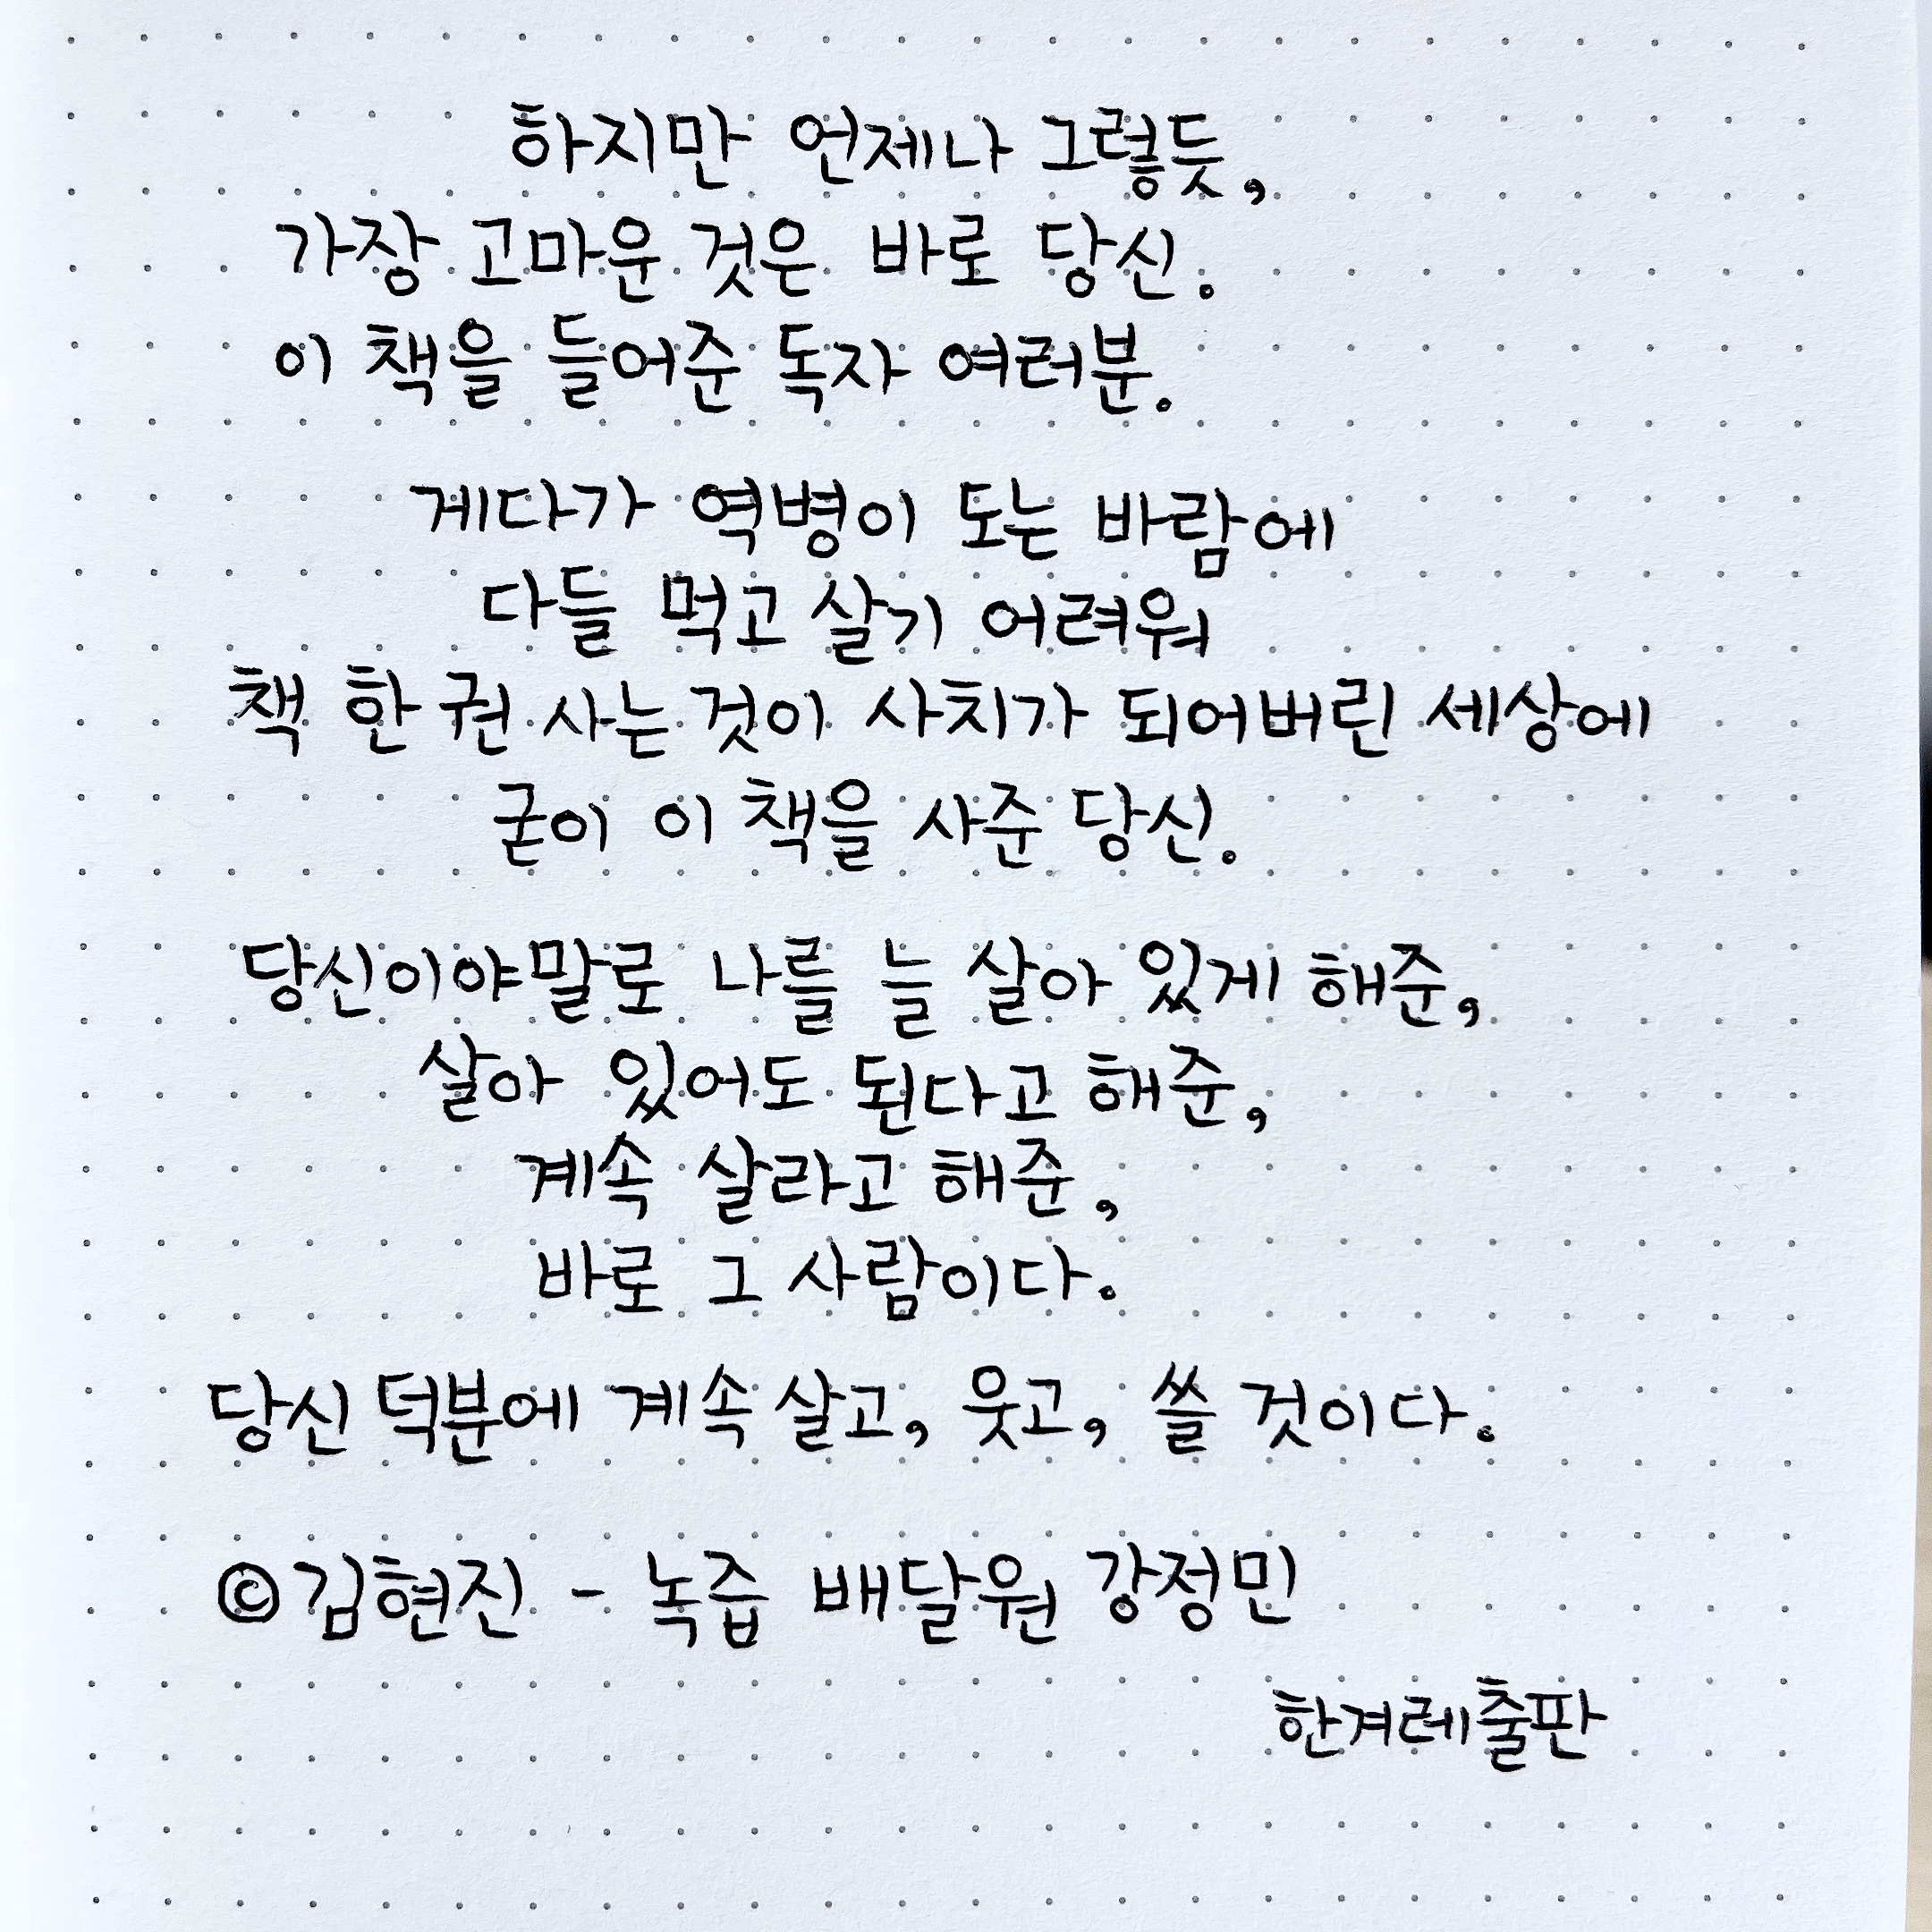 하지만 언제나 그렇듯,
가장 고마운 것은 바로 당신.
이 책을 들어준 독자 여러분.
게다가 역병이 도는 바람에
다들 먹고 살기 어려워
책 한 권 사는 것이 사치가 되어버린 세상에
굳이 이 책을 사준 당신.
당신이야말로 나를 늘 살아 있게 해준,
살아 있어도 된다고 해준,
계속 살라고 해준,
바로 그 사람이다.
당신 덕분에 계속 살고, 웃고, 쓸 것이다.
©김현진 - 녹즙 배달원 강정민
한겨레출판